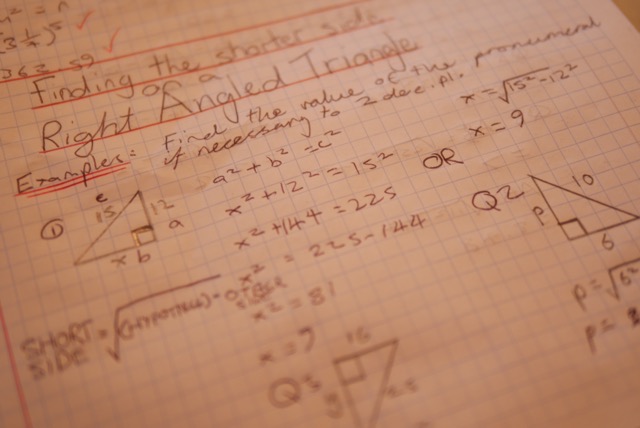 Finding the shorter side
of a
Right Angled Triangle
Examples: Find the value of the pronumeral
if necessary to 2 dec. pl.
① c 15 12 a x b
a² + b² = c²
x² + 12² = 15²
x² + 144 = 225
x² = 225 - 144
x² = 81
OR
x = √15² - 12²
x = 9
SHORT SIDE = √(HYPOTENUSE)²
Q2 10 p 6
p =
p =
Q3 16